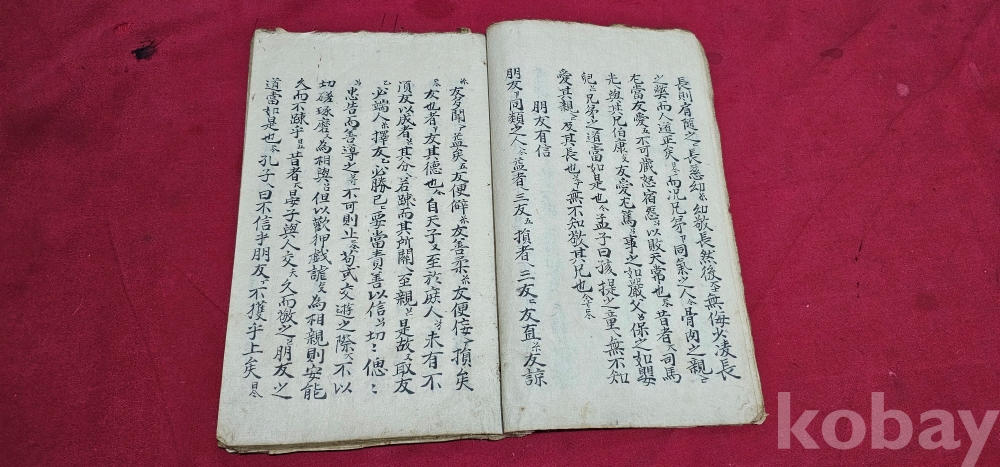 長則有之長慈幼幼敬長然後無侮少凌長
之弊而人道正矣而況兄弟同氣之人骨肉之親
尤當友愛不可藏怒宿怨以敗天常也昔者司馬
光與其兄伯康友愛尤篤事之如嚴父保之如嬰
兒兄弟之道當如是也孟子曰孩提之童無不知
愛其親及其長也無不知敬其兄也
朋友有信
朋友同類之人益者三友損者三友友直友諒
友多聞益矣友便辟友善柔友便侫損矣
友也者友其德也自天子至於庶人未有不
須友以成者其分若踈而其所關至親是故取友
必端人擇友必勝己要當責善以信切切偲偲
忠告而善導之不可則止苟或交遊之際不以
切磋琢磨為相與但以歡押戱謔為相親則安能
久而不踈乎昔者晏子與人交久而敬之朋友之
道當如是也孔子曰不信乎朋友不獲乎上矣
kobay